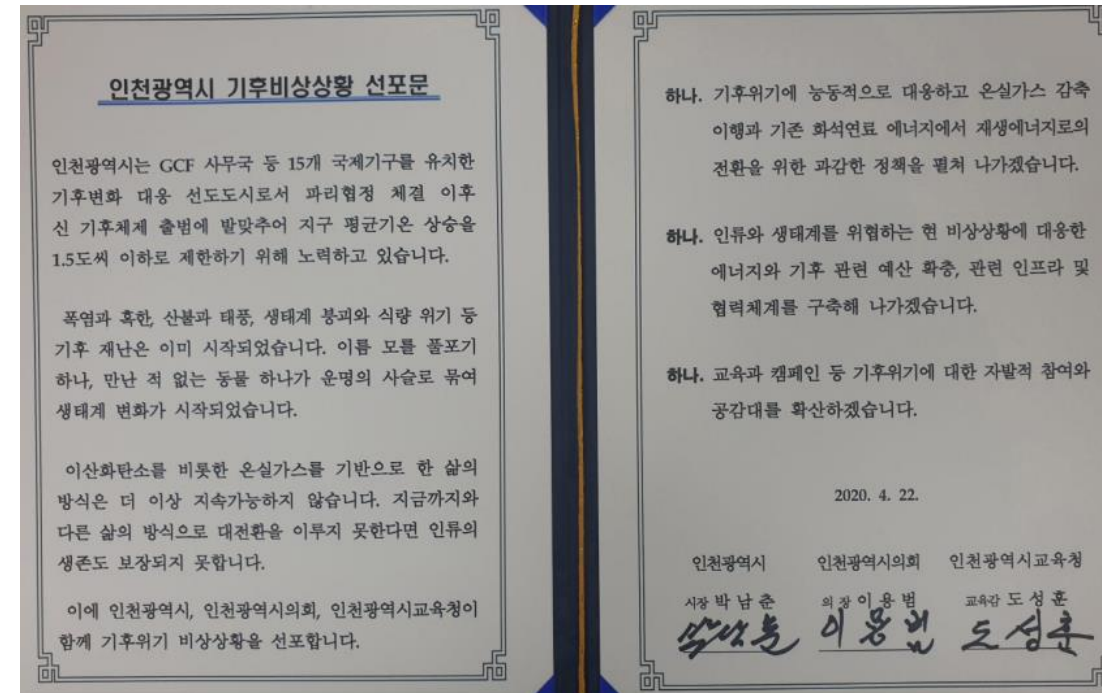 인천광역시 기후비상상황 선포문
인천광역시는 GCF 사무국 등 15개 국제기구를 유치한
기후변화 대응 선도도시로서 파리협정 체결 이후
신 기후체제 출범에 발맞추어 지구 평균기온 상승을
1.5도씨 이하로 제한하기 위해 노력하고 있습니다.
폭염과 혹한, 산불과 태풍, 생태계 붕괴와 식량 위기 등
기후 재난은 이미 시작되었습니다. 이름 모를 풀포기
하나, 만난 적 없는 동물 하나가 운명의 사슬로 묶여
생태계 변화가 시작되었습니다.
이산화탄소를 비롯한 온실가스를 기반으로 한 삶의
방식은 더 이상 지속가능하지 않습니다. 지금까지와
다른 삶의 방식으로 대전환을 이루지 못한다면 인류의
생존도 보장되지 못합니다.
이에 인천광역시, 인천광역시의회, 인천광역시교육청이
함께 기후위기 비상상황을 선포합니다.
하나. 기후위기에 능동적으로 대응하고 온실가스 감축
이행과 기존 화석연료 에너지에서 재생에너지로의
전환을 위한 과감한 정책을 펼쳐 나가겠습니다.
하나. 인류와 생태계를 위협하는 현 비상상황에 대응한
에너지와 기후 관련 예산 확충, 관련 인프라 및
협력체계를 구축해 나가겠습니다.
하나. 교육과 캠페인 등 기후위기에 대한 자발적 참여와
공감대를 확산하겠습니다.
2020. 4. 22.
인천광역시 인천광역시의회 인천광역시교육청
시장 박남춘 의장 이용범 교육감 도성훈
박남춘 이용범 도성훈